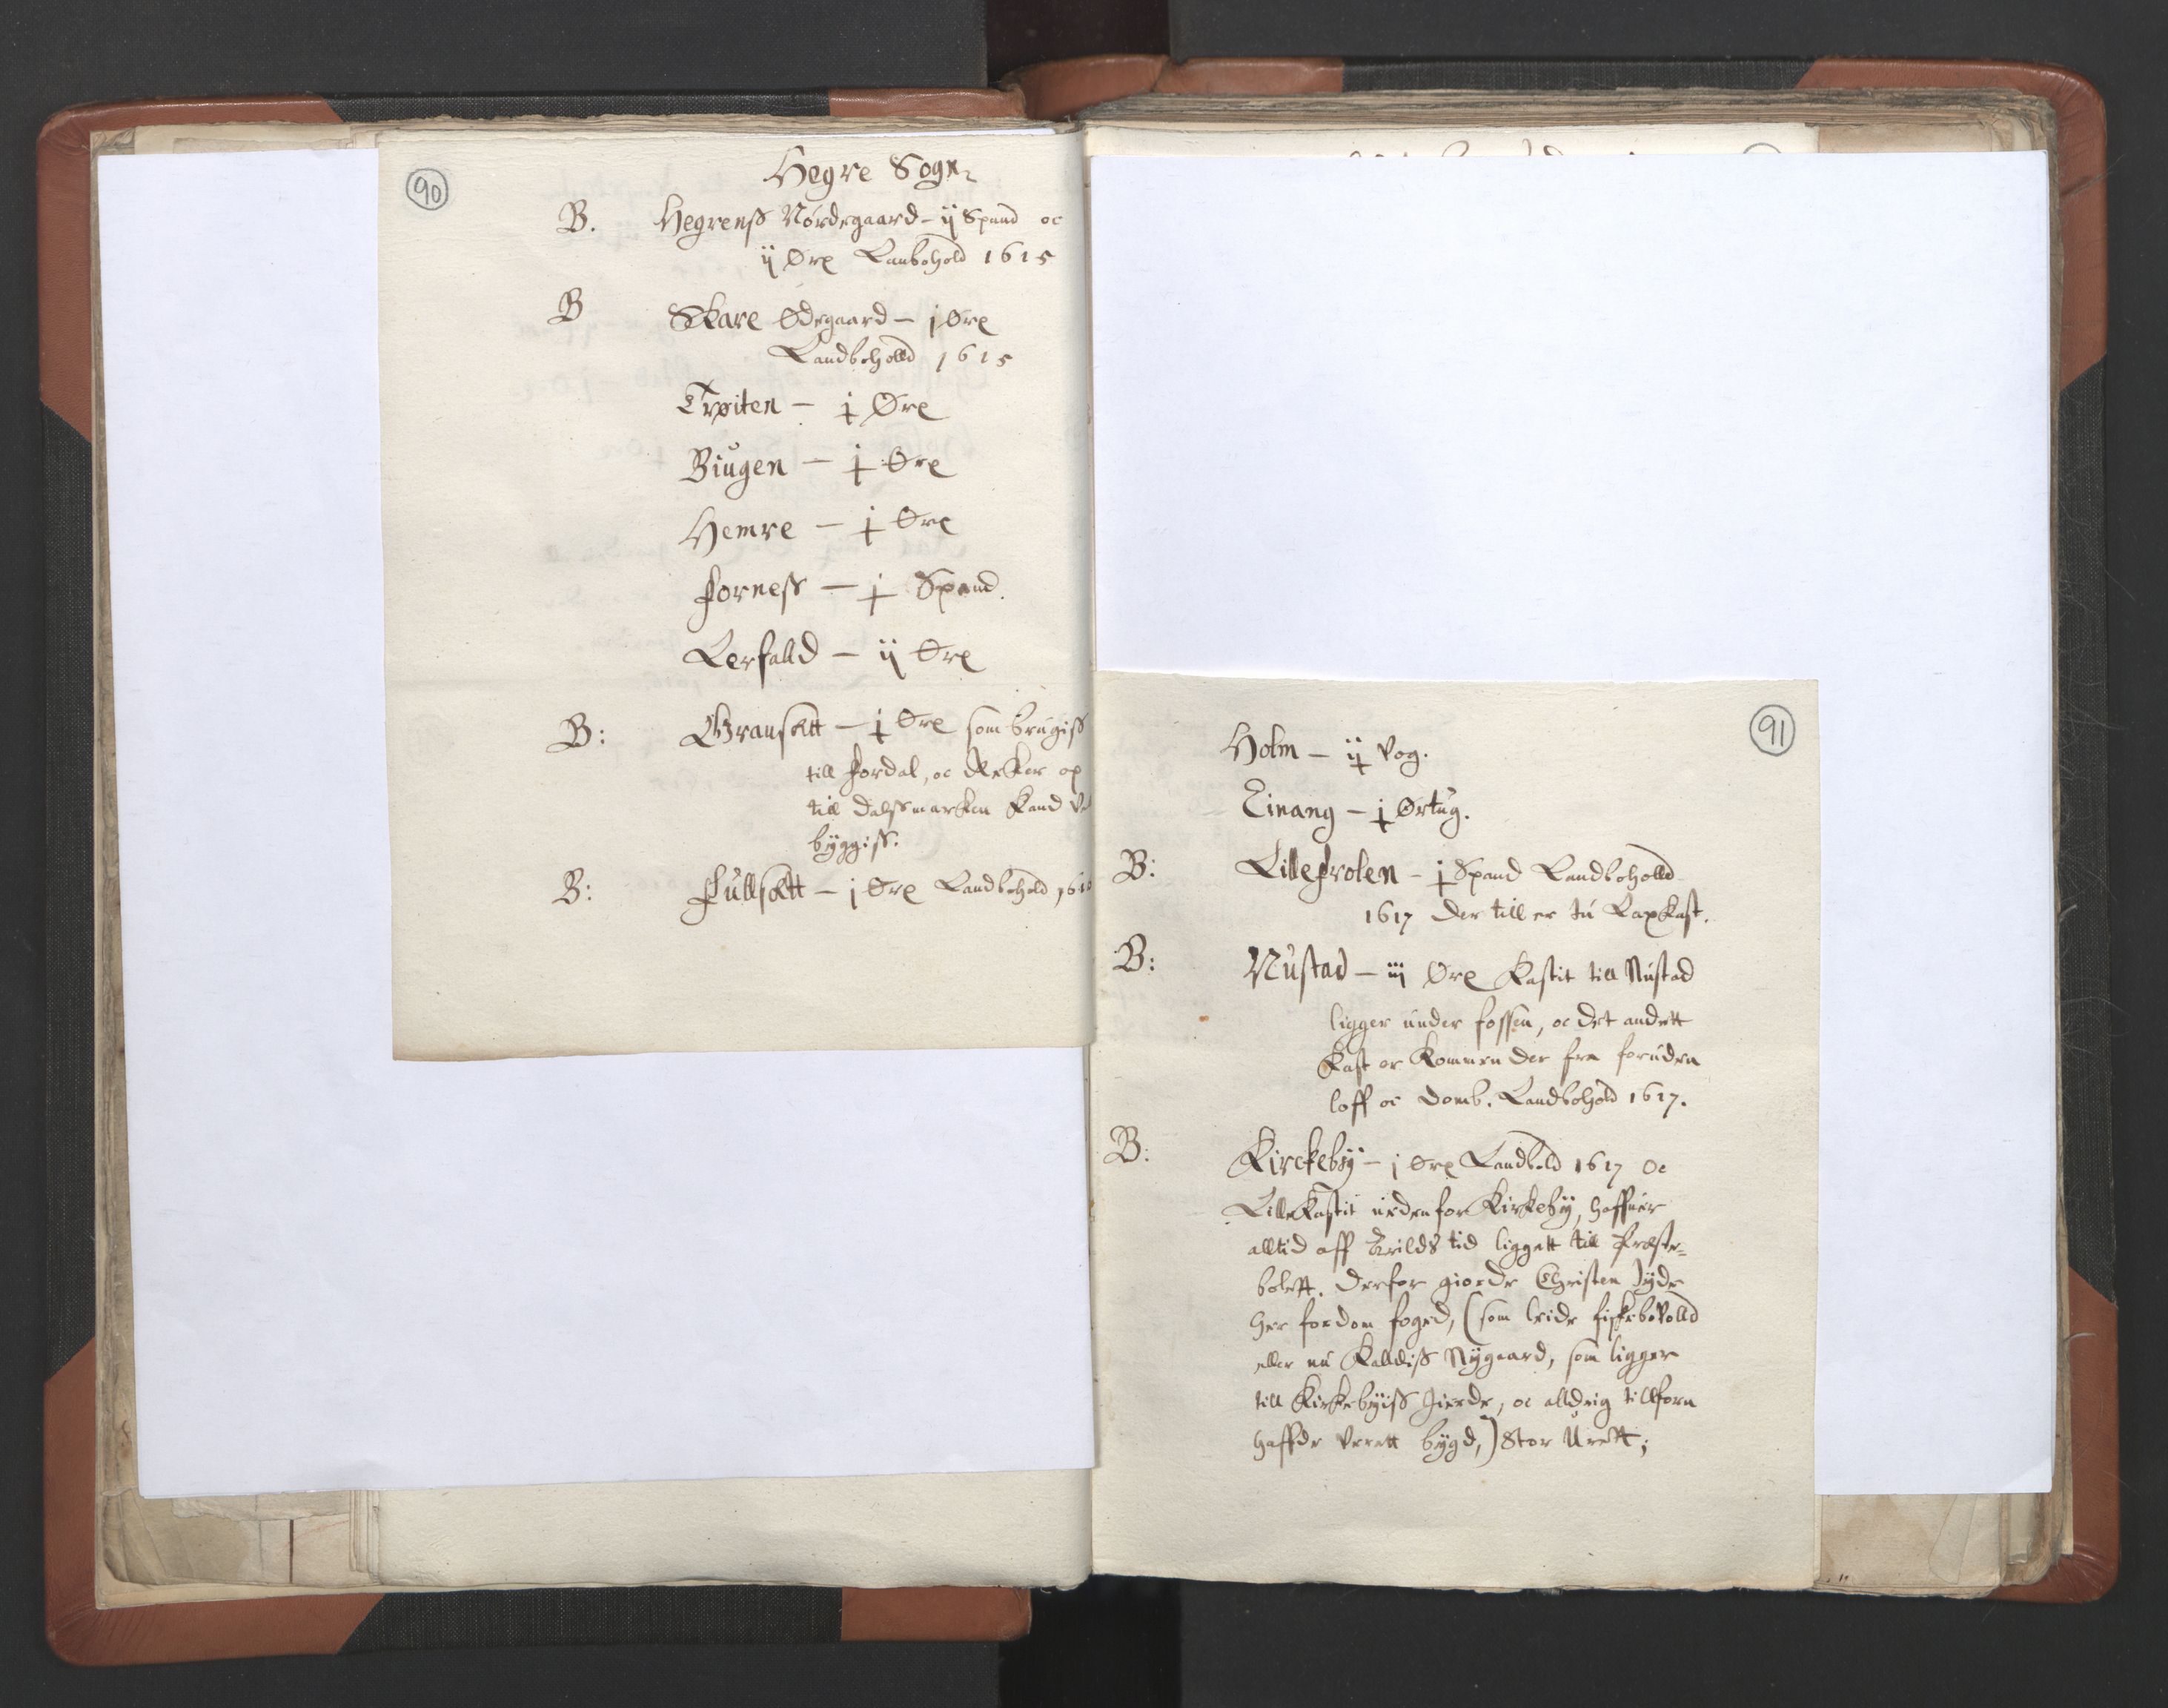 90
Hegre Sogn
B. Hegrenss Nørdegaard – ij Spand oc
ij Øre Landbohold 1615
B Skare Ødegaard – j Øre
Landboholld 1615
Trøiten – j Øre
Biugen – j Øre
Hemre – j Øre
Forness – j Spand.
Lerfalld – ij Øre
B: Gransett – j Øre som brugiss
till Fordal, oc Rekker op
till Dalssmarken kand
byggiss.
B: Fullsett – j Øre Landbohold
91
Holm – ij Vog.
Einang – j Ørtug.
B: Lillefrolen – j Spand Landboholld
1617 der till er tu Laxkast.
B: Nustad – iij Øre Kastit till Nustad
ligger under fossen, oc det andett
Kast er kommen der fra foruden
loff oc domb. Landbohold 1617.
B: Kirckeby – j Øre Landbold 1617 Oc
LilleKastit nedenfor Kirkeby, haffuer
alltid aff Arilds tid liggett till Præste-
bolett. Derfor giorde Christen Jyde
her fordom foged, (som leide
eller nu Kalldiss Nygaard, som ligger
till Kirkebyiss Gierde, oc alldrig tillforn
haffde verett bygd,) Stor Urett;